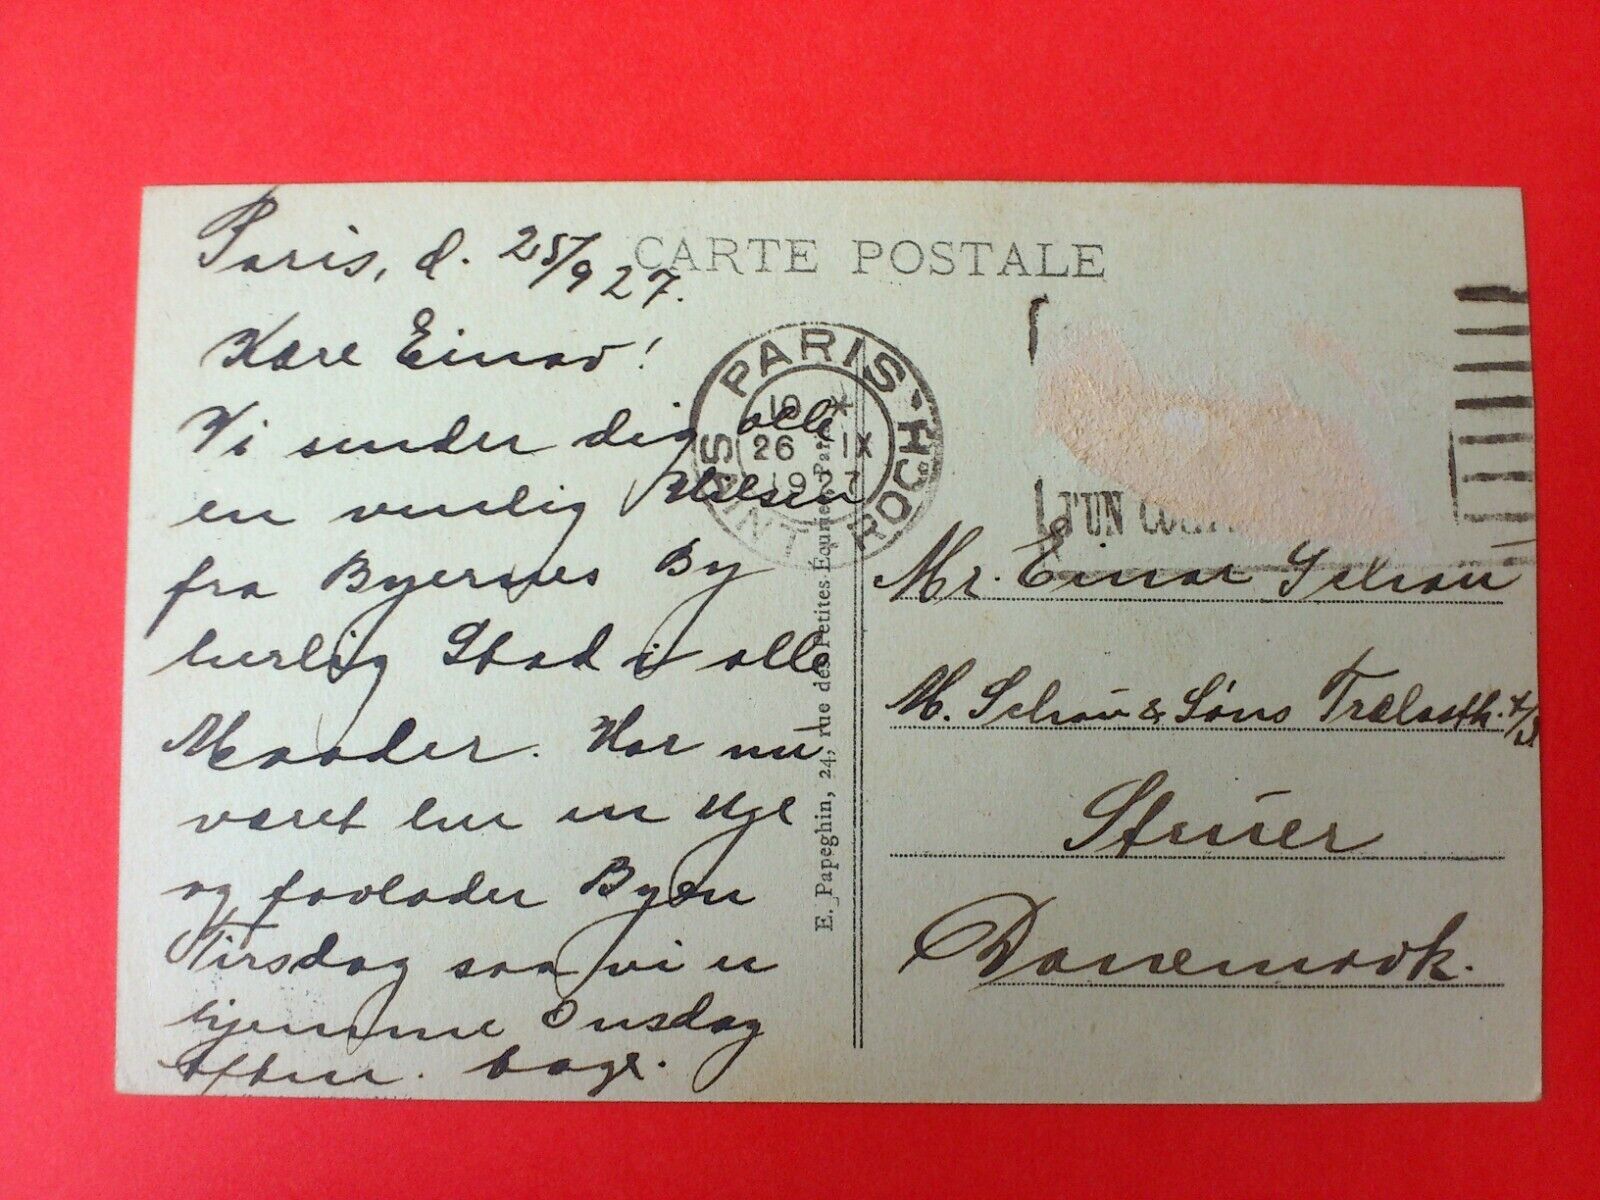 Paris, d. 25/9 27.
CARTE POSTALE
Kære Einar!
Vi sender dig alle
en venlig Hilsen
fra Byernes By
herlig Stad i alle
Maader. Har nu
været her en Uge
og forlader Byen
Tirsdag saa vi er
hjemme Onsdag
Aften.
PARIS - R. St ROCH
SAINT ROCH
10 *
26 IX
1927
E. Papeghin, 24, rue des Petites-Écuries, Paris
D'UN
Mr. Einar Schou
M. Schou & Søns Trælasth. A/S
Struer
Danemark.